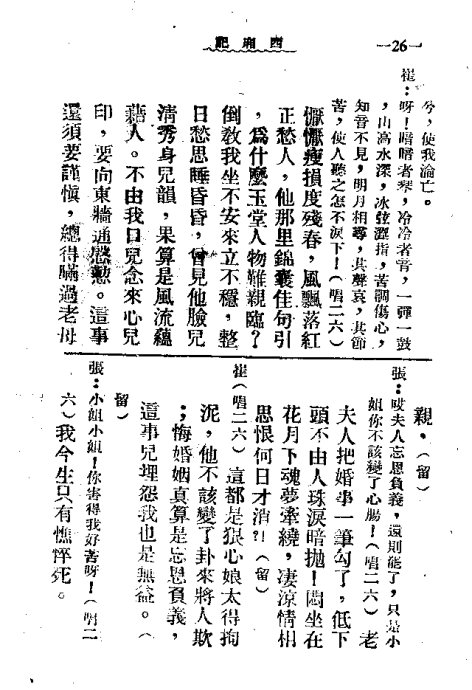 西廂記
—26—
兮，使我淪亡。
崔：呀！嘈嘈者琴，冷冷者音，一彈一鼓
，山高水深，冰弦澀指，苦調傷心，
知音不見，明月相尋，其聲哀，其節
苦，使人聽之怎不淚下！（唱二六）
懨懨瘦損度殘春，風飄落紅
正愁人，他那里錦囊佳句引
，爲什麼玉堂人物難親臨？
倒敎我坐不安來立不穩，整
日愁思睡昏昏，曾見他臉兒
清秀身兒韻，果算是風流蘊
藉人。不由我口兒念來心兒
印，要向東牆通慇懃。這事
還須要謹愼，纔得瞞過老母
親，（留）
張：哎夫人忘恩負義，還則罷了，只是小
姐你不該變了心腸！（唱二六）老
夫人把婚事一筆勾了，低下
頭不由人珠淚暗拋！悶坐在
花月下魂夢牽繞，凄涼情相
思恨何日才消？！（留）
崔（唱二六）這都是狠心娘太得拘
泥，他不該變了卦來將人欺
；悔婚姻真算是忘恩負義，
這事兒埋怨我也是無益。（
留）
張：小姐小姐！你害得我好苦呀！（唱二
六）我今生只有憔悴死。